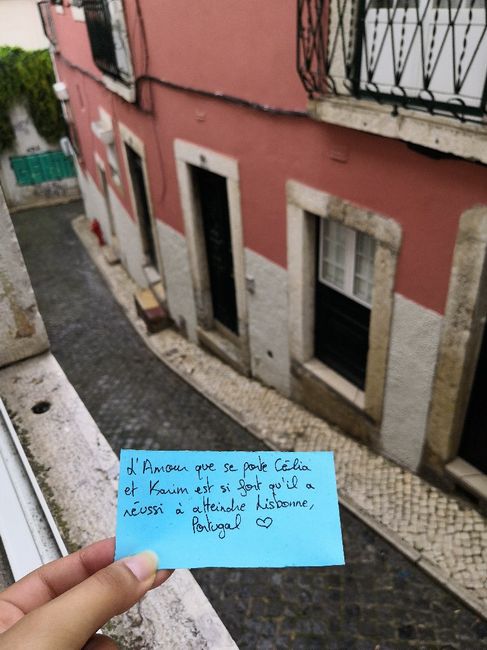 L'Amour que se porte Célia
et Karim est si fort qu'il a
réussi à atteindre Lisbonne,
Portugal ♡